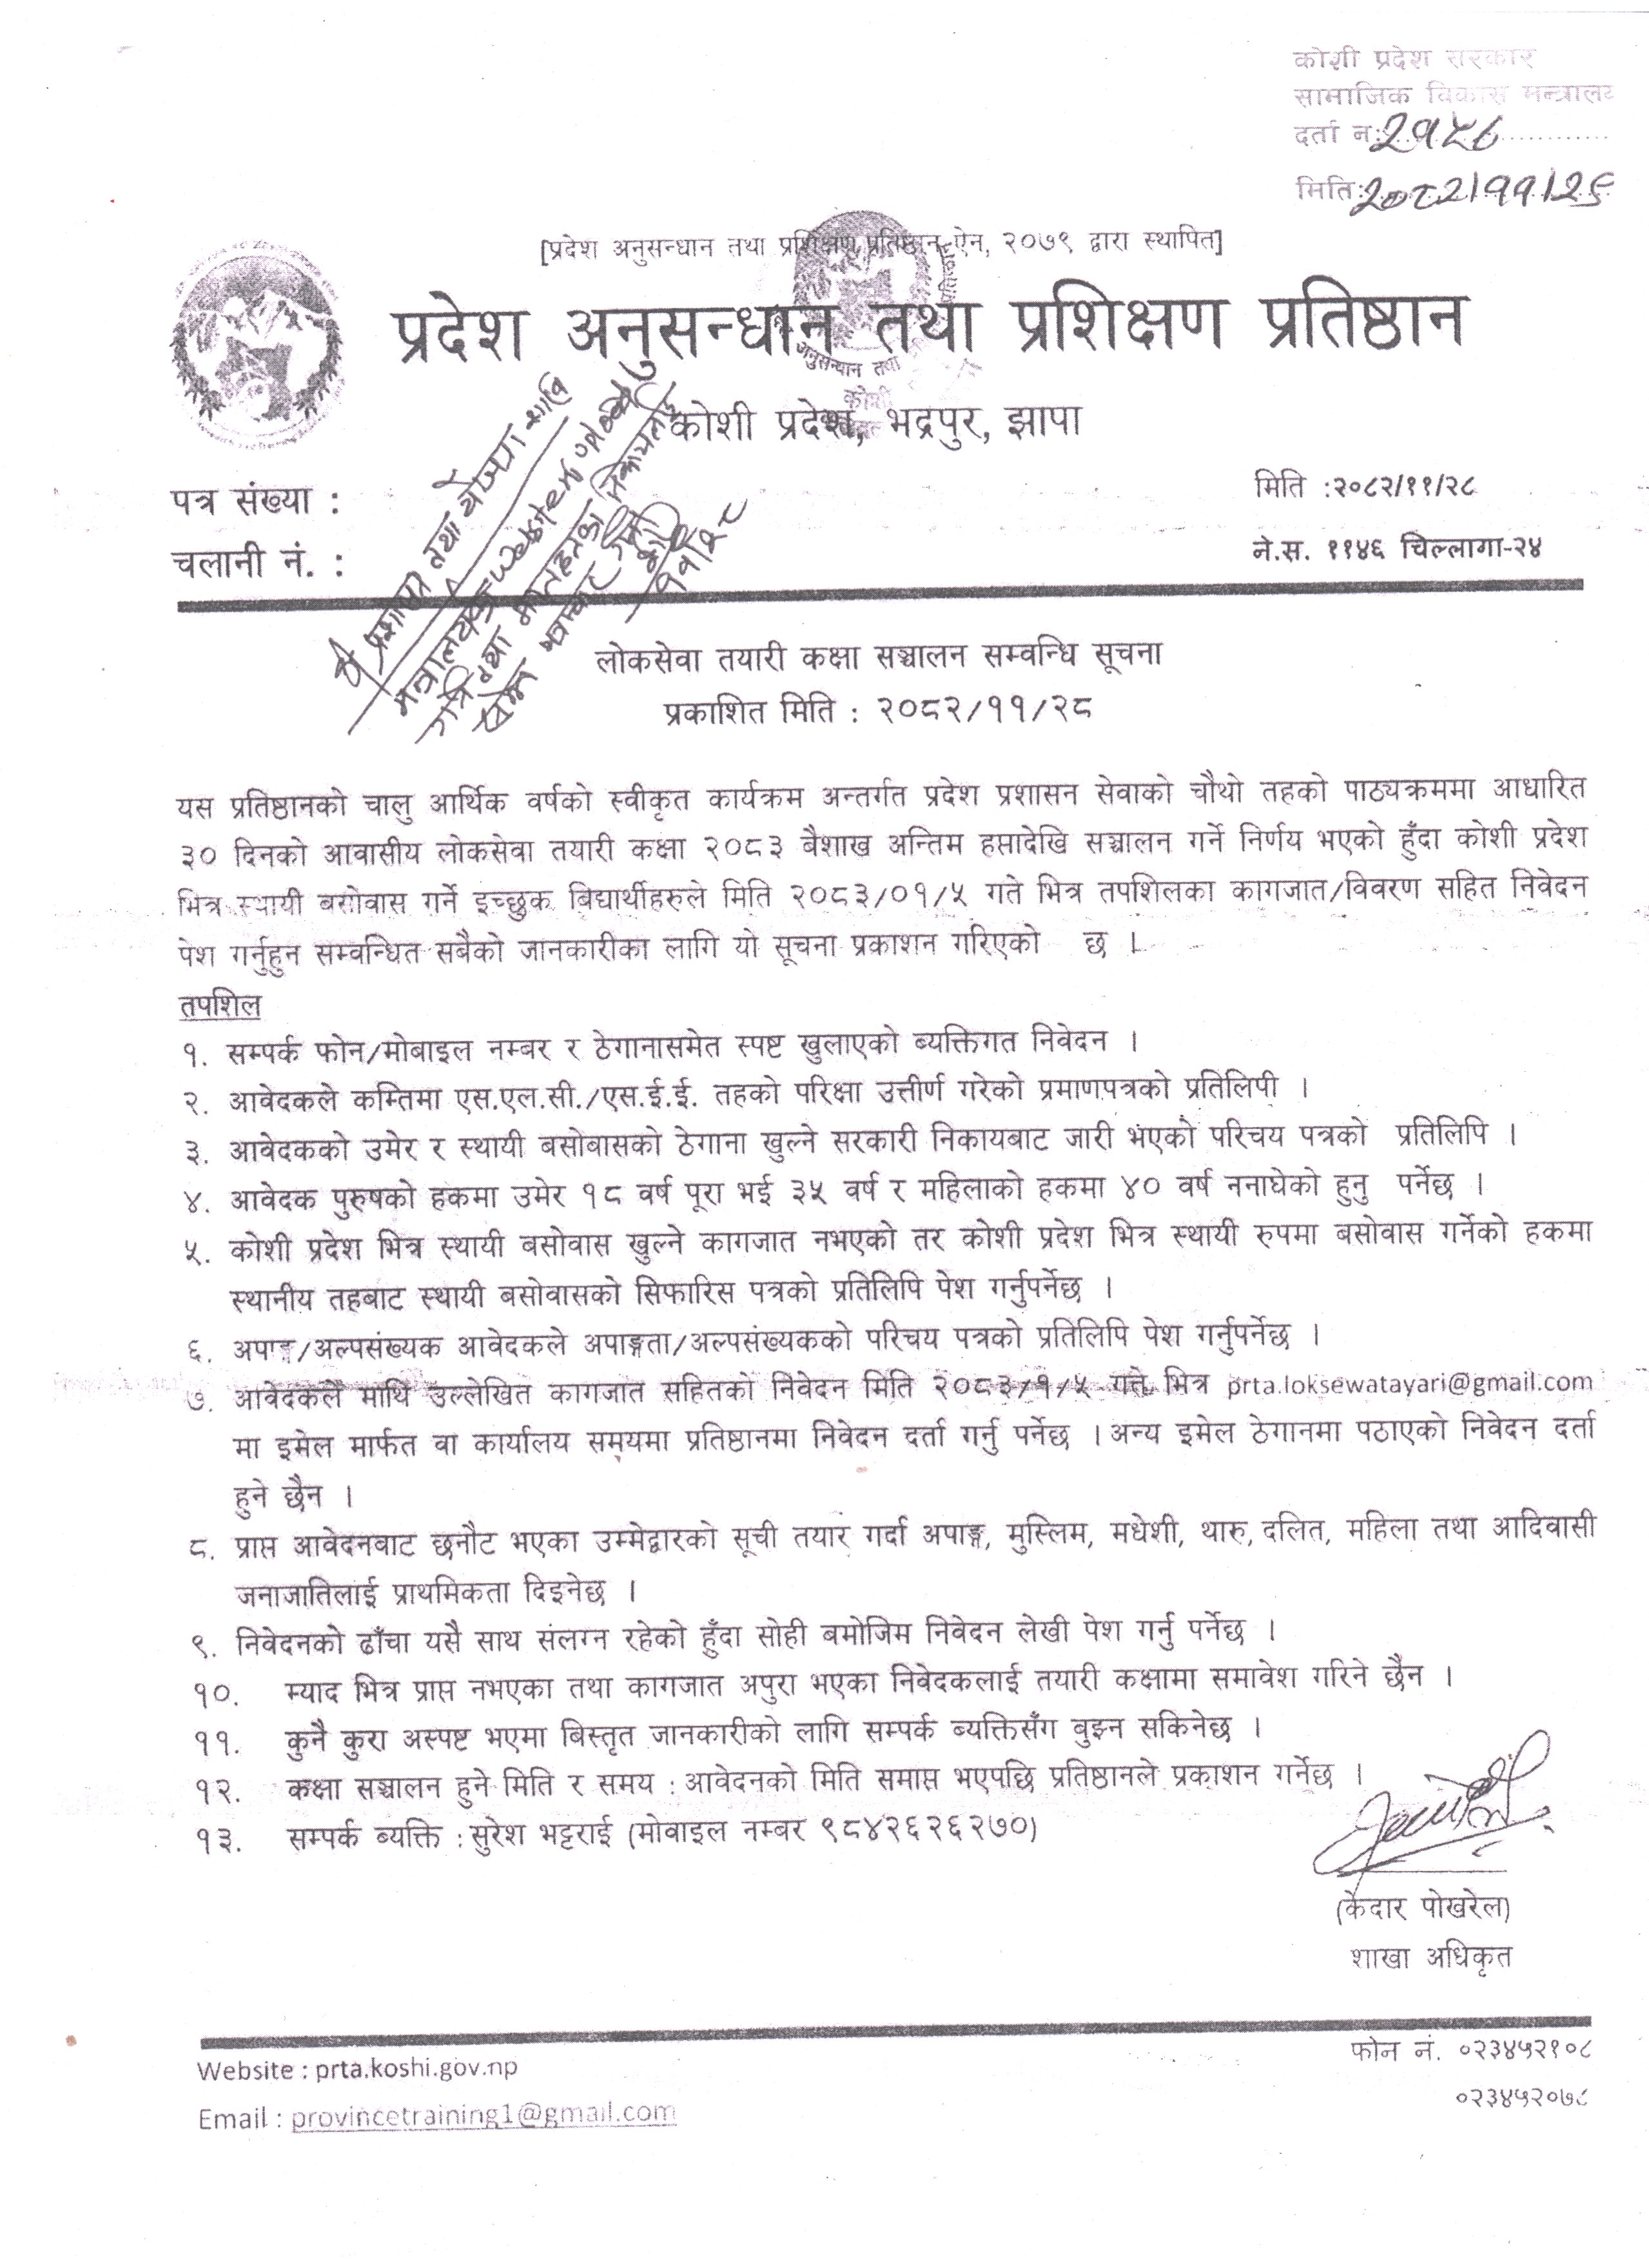 कोशी प्रदेश सरकार
सामाजिक विकास मन्त्रालय
दर्ता न:
मिति: २०८२।११।२९
[प्रदेश अनुसन्धान तथा प्रशिक्षण प्रतिष्ठान ऐन, २०७९ द्वारा स्थापित]
प्रदेश अनुसन्धान तथा प्रशिक्षण प्रतिष्ठान
कोशी प्रदेश, भद्रपुर, झापा
पत्र संख्या :
मिति :२०८२/११/२८
चलानी नं. :
ने.स. ११४६ चिल्लागा-२४
श्री प्रशासन तथा योजना शाखा
११।२८
लोकसेवा तयारी कक्षा सञ्चालन सम्वन्धि सूचना
प्रकाशित मिति : २०८२/११/२८
यस प्रतिष्ठानको चालु आर्थिक वर्षको स्वीकृत कार्यक्रम अन्तर्गत प्रदेश प्रशासन सेवाको चौथो तहको पाठ्यक्रममा आधारित
३० दिनको आवासीय लोकसेवा तयारी कक्षा २०८३ बैशाख अन्तिम हप्तादेखि सञ्चालन गर्ने निर्णय भएको हुँदा कोशी प्रदेश
भित्र स्थायी बसोवास गर्ने इच्छुक बिद्यार्थीहरुले मिति २०८३/०१/५ गते भित्र तपशिलका कागजात/विवरण सहित निवेदन
पेश गर्नुहुन सम्वन्धित सबैको जानकारीका लागि यो सूचना प्रकाशन गरिएको छ ।
तपशिल
१. सम्पर्क फोन/मोबाइल नम्बर र ठेगानासमेत स्पष्ट खुलाएको ब्यक्तिगत निवेदन ।
२. आवेदकले कम्तिमा एस.एल.सी./एस.ई.ई. तहको परिक्षा उत्तीर्ण गरेको प्रमाणपत्रको प्रतिलिपी ।
३. आवेदकको उमेर र स्थायी बसोबासको ठेगाना खुल्ने सरकारी निकायबाट जारी भएको परिचय पत्रको प्रतिलिपि ।
४. आवेदक पुरुषको हकमा उमेर १८ वर्ष पूरा भई ३५ वर्ष र महिलाको हकमा ४० वर्ष ननाघेको हुनु पर्नेछ ।
५. कोशी प्रदेश भित्र स्थायी बसोवास खुल्ने कागजात नभएको तर कोशी प्रदेश भित्र स्थायी रुपमा बसोवास गर्नेको हकमा
स्थानीय तहबाट स्थायी बसोवासको सिफारिस पत्रको प्रतिलिपि पेश गर्नुपर्नेछ ।
६. अपाङ्ग/अल्पसंख्यक आवेदकले अपाङ्गता/अल्पसंख्यकको परिचय पत्रको प्रतिलिपि पेश गर्नुपर्नेछ ।
७. आवेदकले माथि उल्लेखित कागजात सहितको निवेदन मिति २०८३/१/५ गते भित्र prta.loksewatayari@gmail.com
मा इमेल मार्फत वा कार्यालय समयमा प्रतिष्ठानमा निवेदन दर्ता गर्नु पर्नेछ । अन्य इमेल ठेगानमा पठाएको निवेदन दर्ता
हुने छैन ।
८. प्राप्त आवेदनबाट छनौट भएका उम्मेद्वारको सूची तयार गर्दा अपाङ्ग, मुस्लिम, मधेशी, थारु, दलित, महिला तथा आदिवासी
जनाजातिलाई प्राथमिकता दिइनेछ ।
९. निवेदनको ढाँचा यसै साथ संलग्न रहेको हुँदा सोही बमोजिम निवेदन लेखी पेश गर्नु पर्नेछ ।
१०. म्याद भित्र प्राप्त नभएका तथा कागजात अपुरा भएका निवेदकलाई तयारी कक्षामा समावेश गरिने छैन ।
११. कुनै कुरा अस्पष्ट भएमा बिस्तृत जानकारीको लागि सम्पर्क ब्यक्तिसँग वुझ्न सकिनेछ ।
१२. कक्षा सञ्चालन हुने मिति र समय : आवेदनको मिति समाप्त भएपछि प्रतिष्ठानले प्रकाशन गर्नेछ ।
१३. सम्पर्क ब्यक्ति : सुरेश भट्टराई (मोवाइल नम्बर ९८४२६२६२७०)
(केदार पोखरेल)
शाखा अधिकृत
Website : prta.koshi.gov.np
फोन नं. ०२३४५२१०८
Email : provincetraining1@gmail.com
०२३४५२०७८